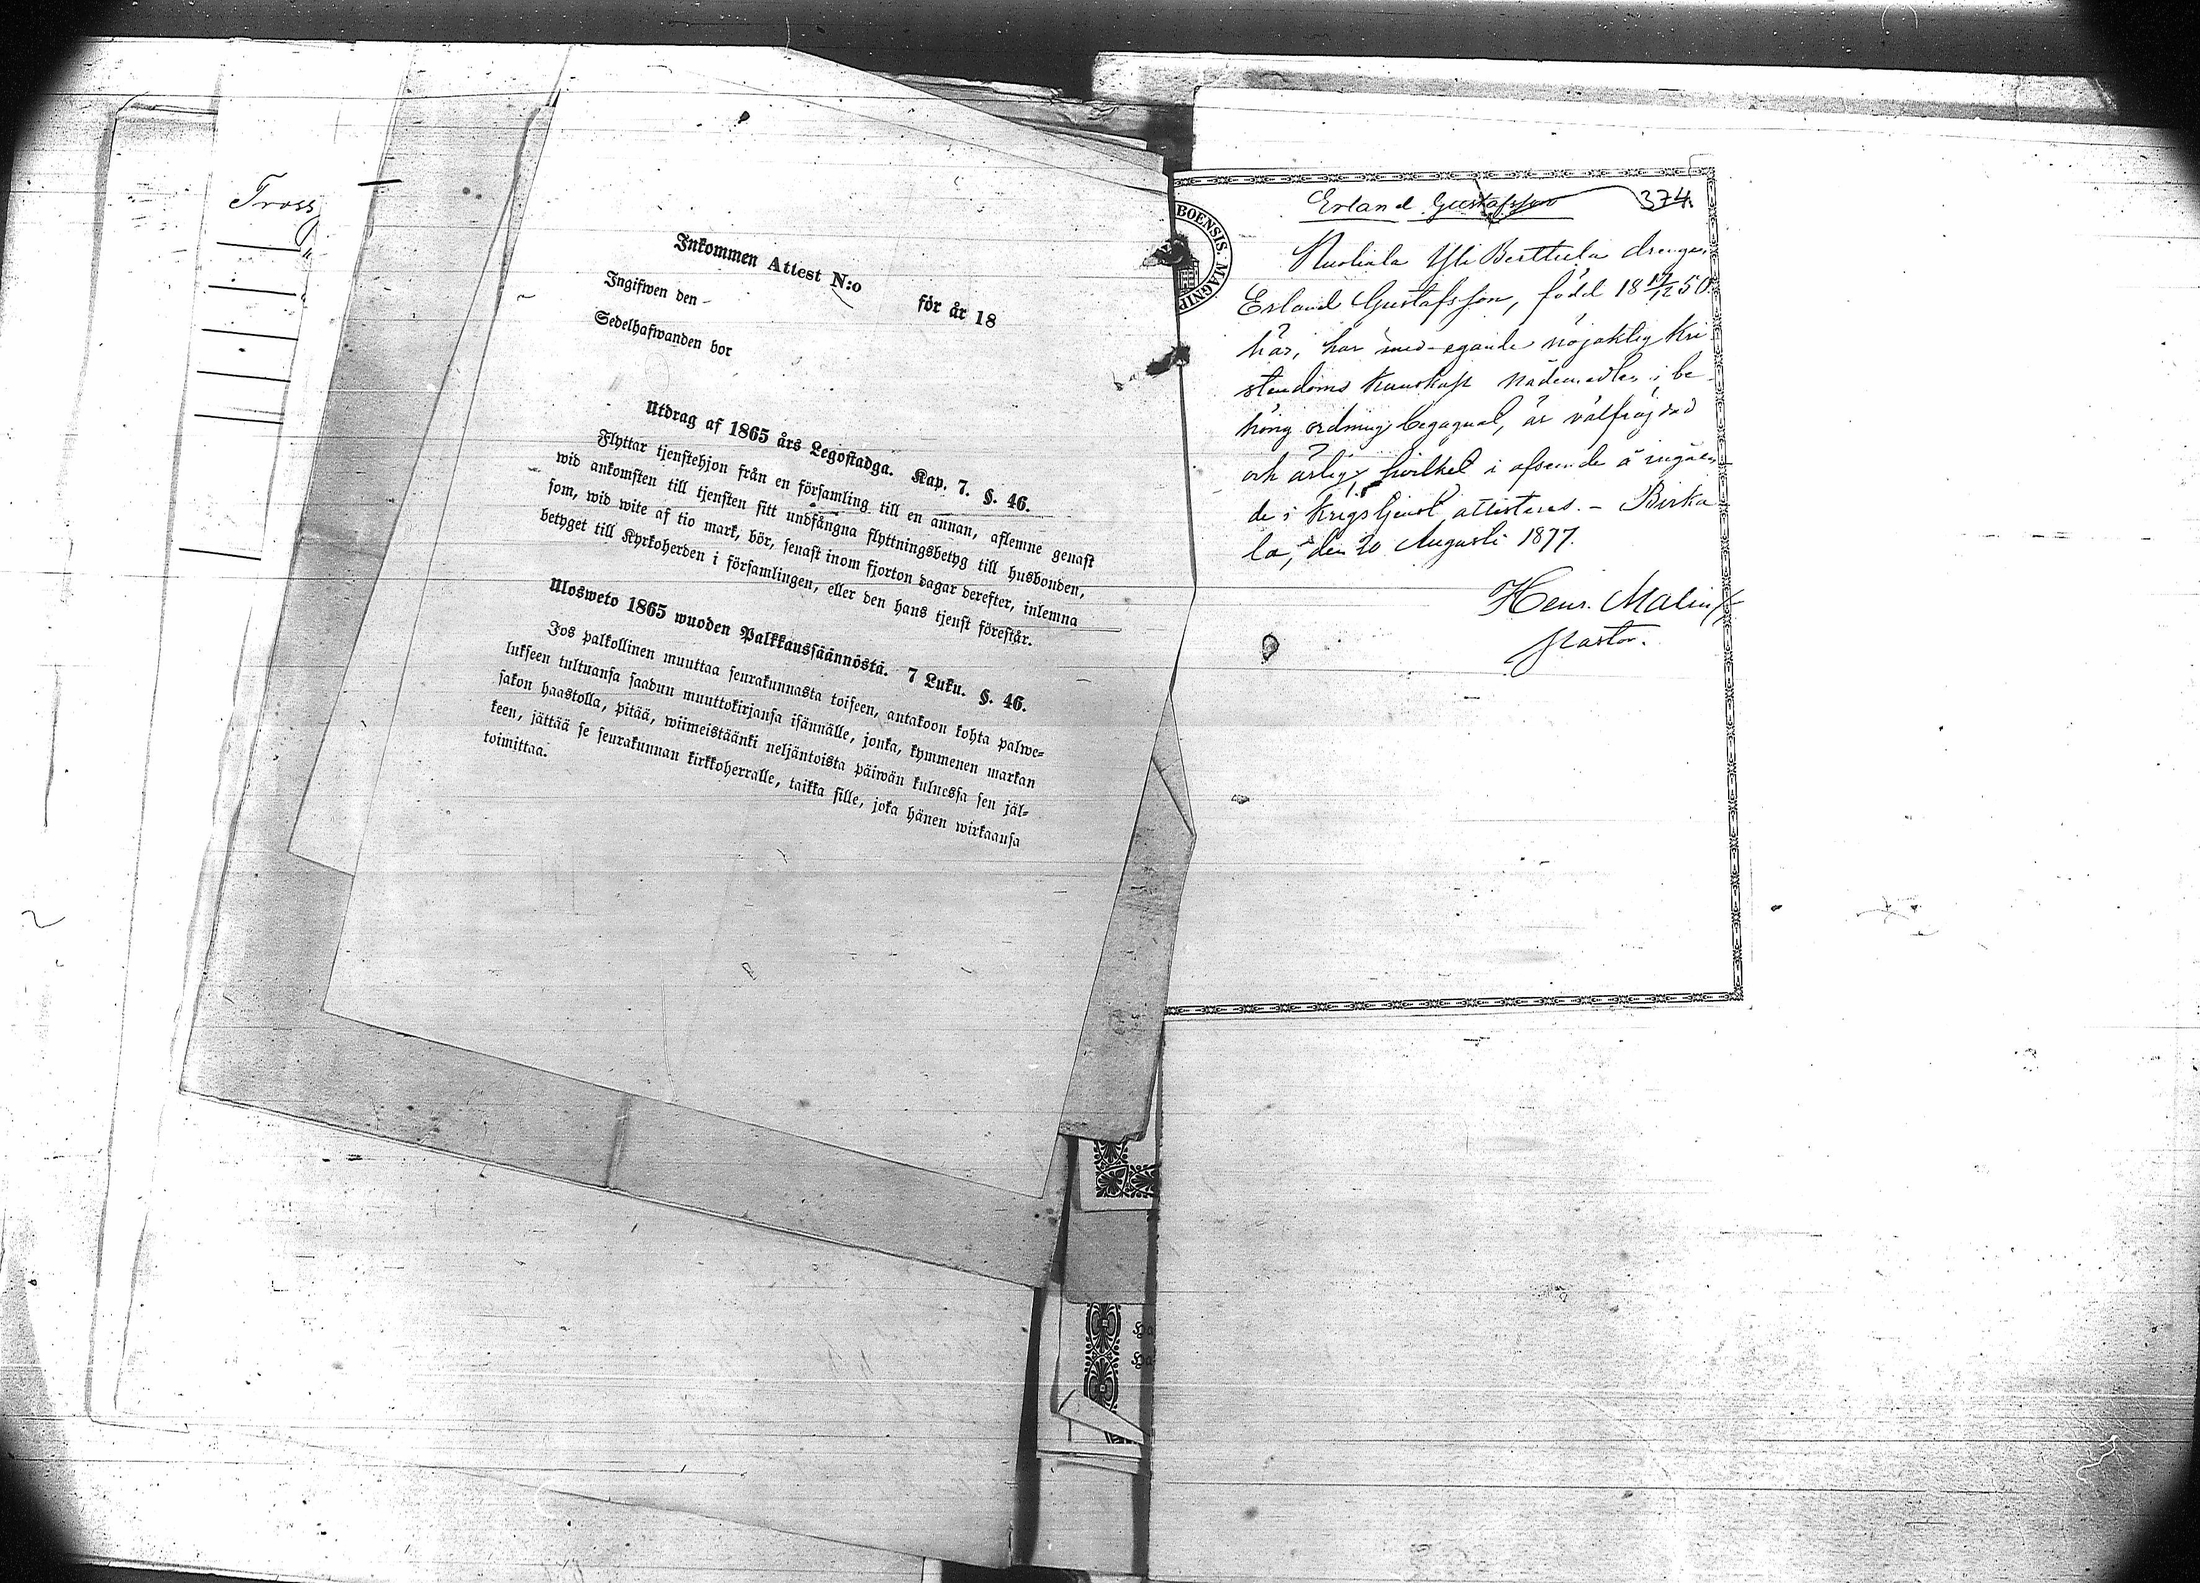 Tross
Inkommen Attest N:o för år 18
Ingifwen den
Sedelhafwanden bor
Utdrag af 1865 års Legostadga. Kap. 7. §. 46.
Flyttar tjenstehjon från en församling till en annan, aflemne genast
wid ankomsten till tjensten sitt undfångna flyttningsbetyg till husbonden,
som, wid wite af tio mark, bör, senast inom fjorton dagar derefter, inlemna
betyget till Kyrkoherden i församlingen, eller den hans tjenst förestår.
Ulosweto 1865 wuoden Palkkaussäännöstä. 7 Luku. §. 46.
Jos palkollinen muuttaa seurakunnasta toiseen, antakoon kohta palwe-
lukseen tultuansa saadun muuttokirjansa isännälle, jonka, kymmenen markan
sakon haastolla, pitää, wiimeistäänki neljäntoista päiwän kuluessa sen jäl-
keen, jättää se seurakunnan kirkkoherralle, taikka sille, joka hänen wirkaansa
toimittaa.
BOENSIS. MAGNIF
Erland Gustafsson 374.
Kuoliala Yli Berttula drengen
Erland Gustafsson, född 18 17/12 50
här, har med egande nöjaktig Kri
stendoms kunskap nådemedlen i be-
hörig ordning begagnat, är välfräjdad
och ärlig, hvilket i afseende å ingåen-
de i Krigstjenst attesteras. - Birka
la, den 20 Augusti 1877.
Henr. Malin
Pastor.